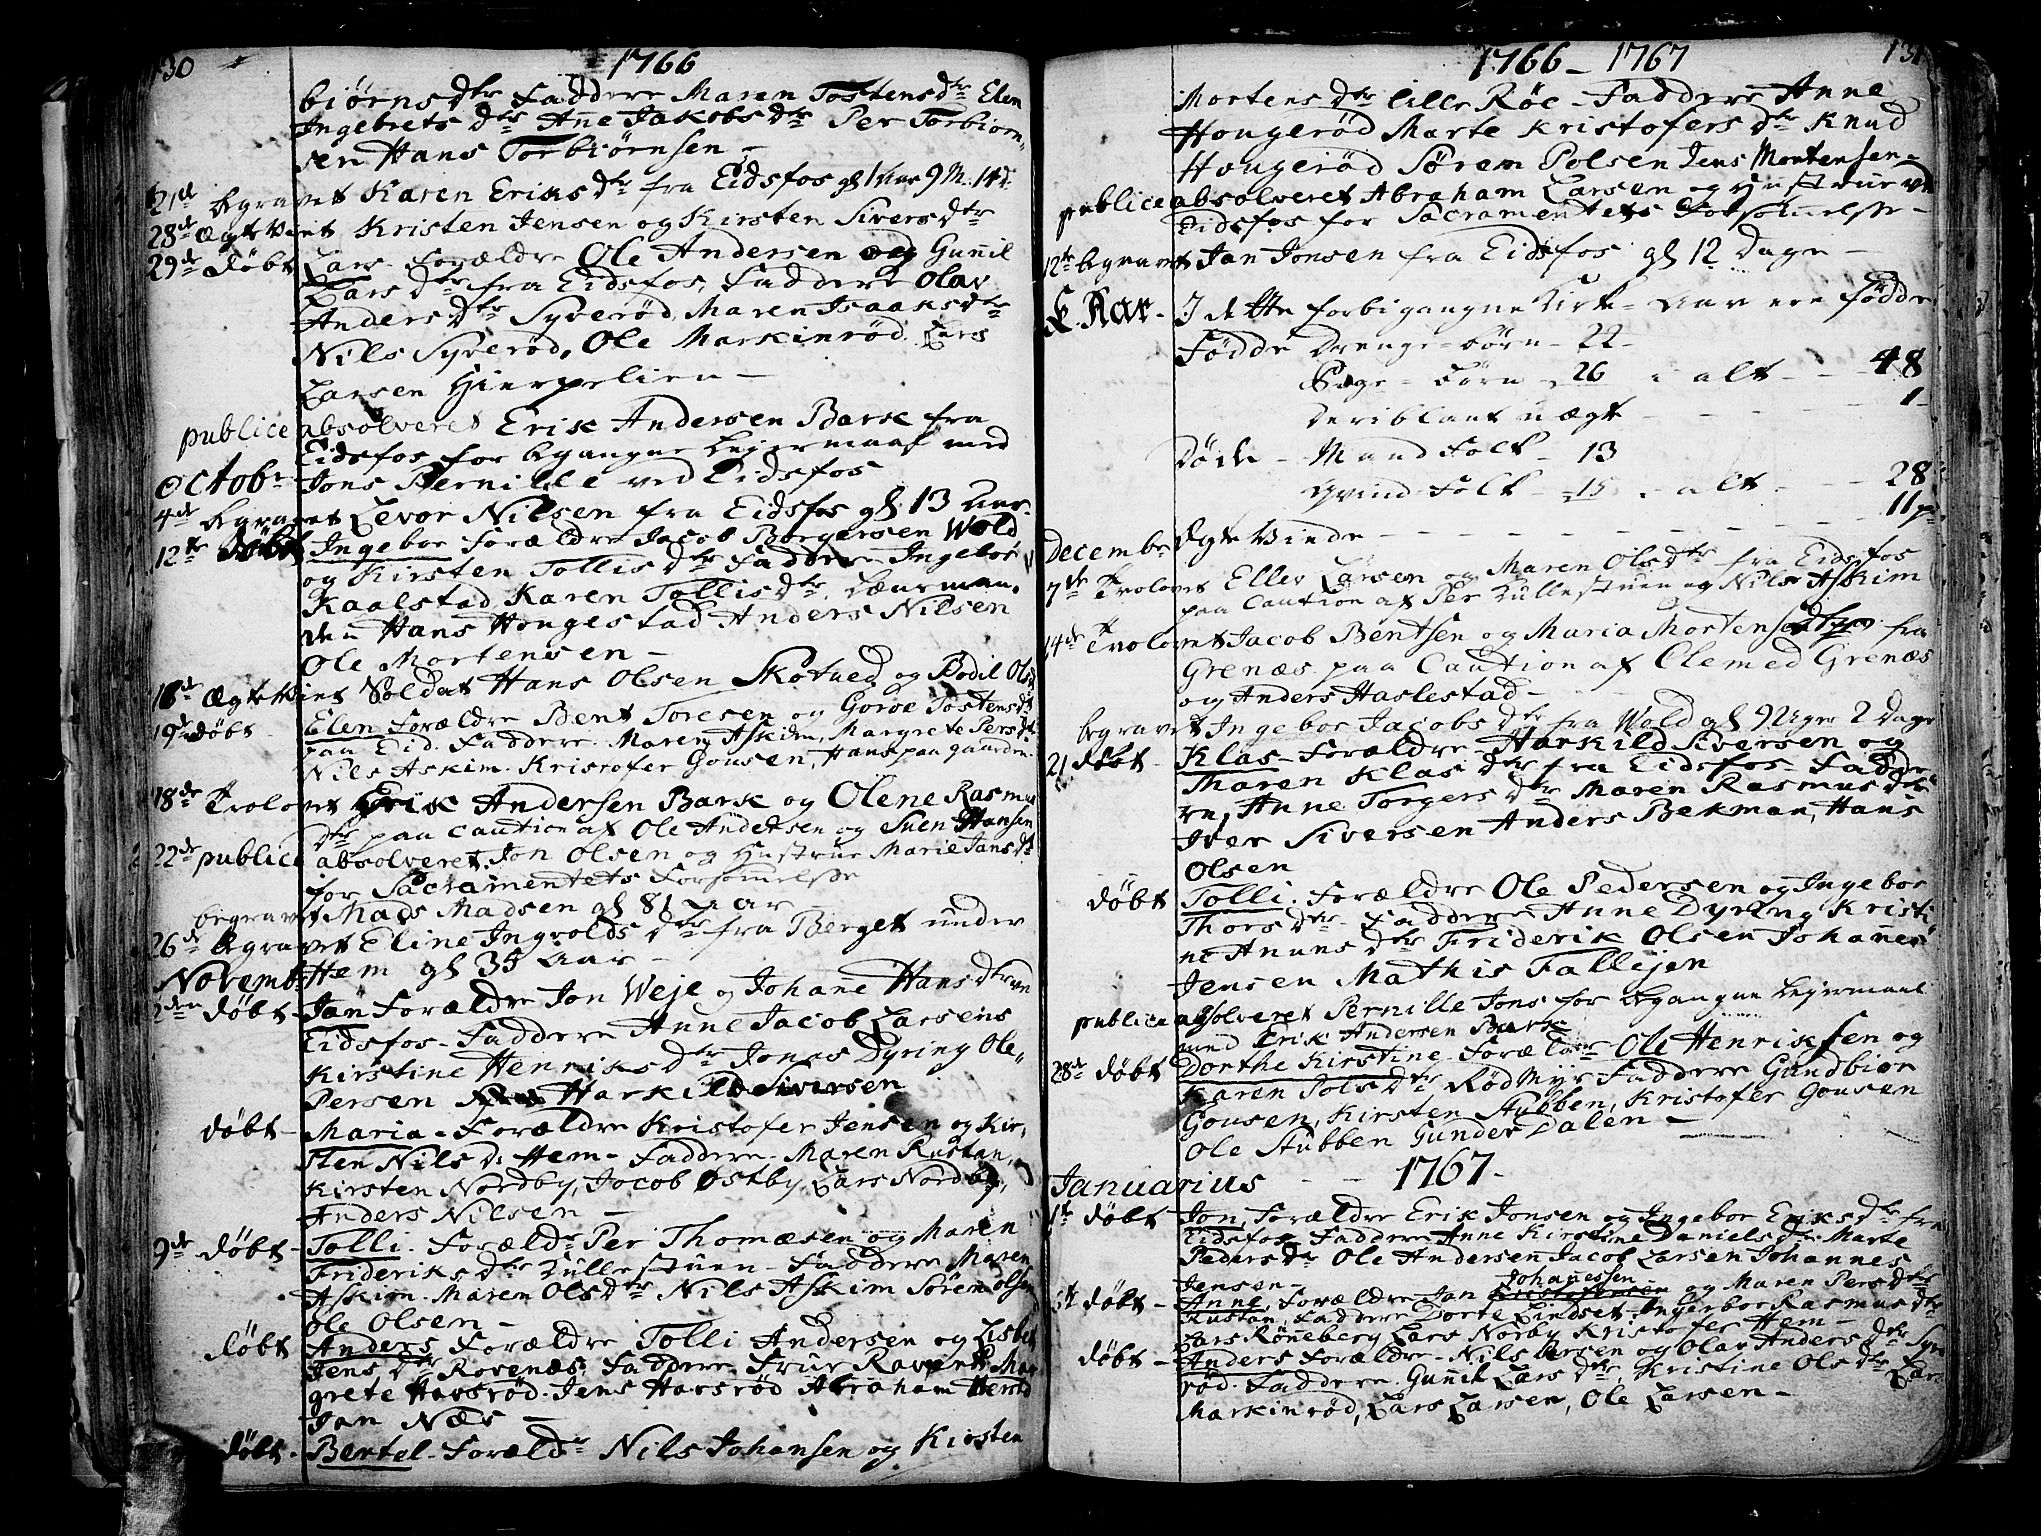 130
1766
biørnsdtr Faddere Maren Tostensdtr Elen
Ingebretsdtr Añe Jakobsdtr Per Torbiorn-
sen Hans Torbiørnsen -
21de Begravet Karen Eriksdtr fra Eidsfos gl. 1 Aar 9 M. 14 d.
28de Ægteviet Kristen Jensen og Kirsten Siversdtr
29de døbt Lars Forældre Ole Andersen og Guñil
Larsdtr fra Eidsfos, Faddere Olav
Andersdtr Syverød, Maren Isaaksdtr
Nils Syverød, Ole Markinrød Lars
Larsen Hierpelien -
publice absolveret Erik Andersen Bark fra
Eidsfos for begangne Leiermaal med
Octobr Jons Pernille ved Eidsfos
4de Begravet Levor Nilsen fra Eidsfos gl. 13 Aar-
12te døbt Ingebor Forældre Jacob Borgersen Wold
og Kirsten Tollisdtr Faddere Ingebor
Kaalstad Karen Tollisdtr, Lænsman-
den Hans Hougestad Anders Nilsen
Ole Mortensen -
16de Ægteviet Soldat Hans Olsen Skotved og Bodil Ols
19de døbt Elen Forældre Bent Toresen og Goroe Tostensdtr
paa Eid. Faddere Maren Askim, Margrete Persdtr
Nils Askim. Kristofer Gousen, Hans paa gaarden-
18de Trolovet Erik Andersen Bark og Olene Rasmus
dtr paa Caution af Ole Andersen og Suen Hansen
22de publice absolveret. Jon Olsen og Hustrue Marie Jansdtr
for Sacramentets Forsømelse
begravet Mads Madsen gl. 81 Aar -
26de Begravet Eline Ingvoldsdtr fra Berget under
Novemb. Hem gl. 35 Aar -
2den døbt Jan Forældre Jon Weje og Johane Hansdtr ved
Eidsfos - Faddere Anne Jacob Larsens
Kirstine Henriksdtr Jonas Dyring Ole
Persen Harkild Siversen
døbt - Maria - Forældre Kristofer Jensen og Kir-
sten Nilsd. Hem - Faddere - Maren Rustan,
Kirsten Nordby, Jacob Østby Lars Nordby,
Anders Nilsen -
9de døbt - Tolli. Foreldr Per Thomæsen og Maren
Frideriksdtr Hullestuen - Faddere Maren
Askim. Maren Olsdtr Nils Askim Søren Olsen
Ole Olsen -
døbt Anders Forældre Tolli Andersen og Lisbet
Jensdtr Rovenæs Faddere Frue Ravert Mar
grete Havsrød. Jens Havsrød Abraham
Jan Næs -
døbt - Bertel - Foreldr Nils Johansen og Kirsten
1766 - 1767
131
Mortensdtr lille Røe - Faddere Anne
Hougerød Marte Kristofersdtr Knud
Hougerød Søren Polsen Jens Mortensen -
publice absolveret Abraham Larsen og Hustrue ved
Eidsfos for Sacramentets Forsømelse -
12te begravet Jan Jonsen fra Eidsfos gl 12 Dage -
K. Aar - I dette forbigangne Kirke-Aar ere fødde
Fødde Drenge-børn - 22 -
Pige-børn - 26 i alt - - 48
Deriblant uægt - - - - 1
Døde - Mandfolk - 13
qvindfolk - 15 i alt - - 28
Decembr Ægteviede - - - - - 11 p.
7de Trolovet Ellev Larsen og Maren Olsdtr fra Eidsfos
paa Caution af Per Hullestuen og Nils Askim
14de Trolovet Jacob Bentsen og Maria Mortens fra
Grenæs paa Caution af Clemed Grenæs
og Anders Haslestad -
begravet Ingebor Jacobsdtr fra Wold gl. 9 Uger 2 Dage
21 døbt - Klas - Forældre - Harkild Siversen og
Tharen Klasdtr fra Eidsfos Fadde-
re, Anne Torgersdtr Maren Rasmusdtr
Iver Siversen Anders Bekman, Hans
Olsen
døbt Tolli. Forældre Ole Pedersen og Ingebor
Thorsdtr Faddere Anne Dyring Kristi
ne Anunsdtr Friderik Olsen Johañes
Jensen Mathis Fallejen
publice absolveret Pernille Jons for begangne Leiermaal
med Erik Andersen Bark
28de døbt Dorthe Kirstine - Forældre Ole Henriksen og
Karen Polsdtr Rødmyr Faddere Gundbior
Gousen, Kirsten Stubben, Kristofer Gousen
Ole Stubben Gunder Dalen -
Januarius - - 1767 -
1te døbt - Jon, Forældre Erik Jonsen og Ingebor Eriksdtr fra
Eidsfos Faddere Anne Kirstine Danielsdtr Marte
Pedersdtr Ole Andersen Jacob Larsen Johannes
Jensen -
Johañessen
døbt - Anne, Forældre Jan Kristofersen og Maren Persdtr
Rustan, Faddere Dorte Lindset Ingerbor Rasmusdtr
Lars Røneberg Lars Norby Kristofer Hem -
døbt - Anders Forældre - Nils Larsen og Olav Andersdtr Syve
rød. Faddere. Guñil Larsdtr, Kristine Olsdtr Lars
Markinrød, Lars Larsen, Ole Larsen -